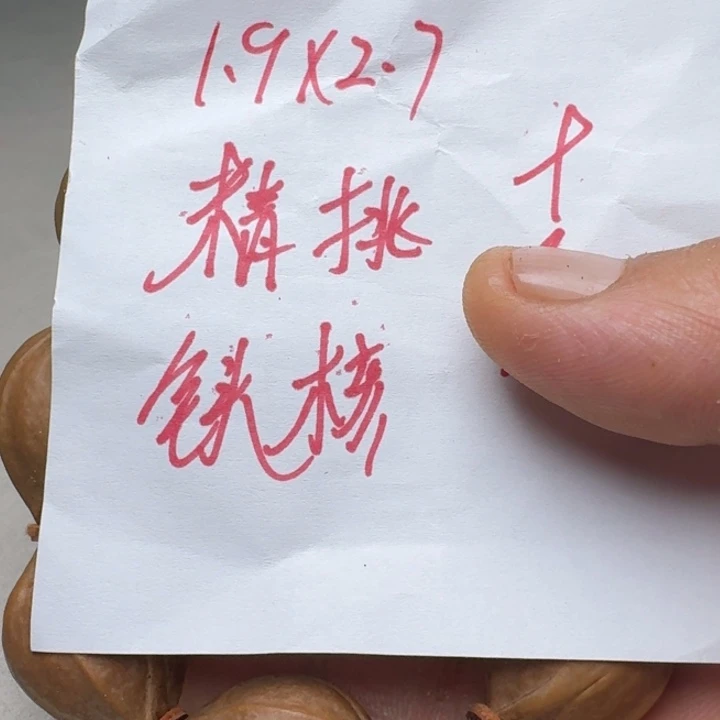 1.9×2.7
精挑
铁核